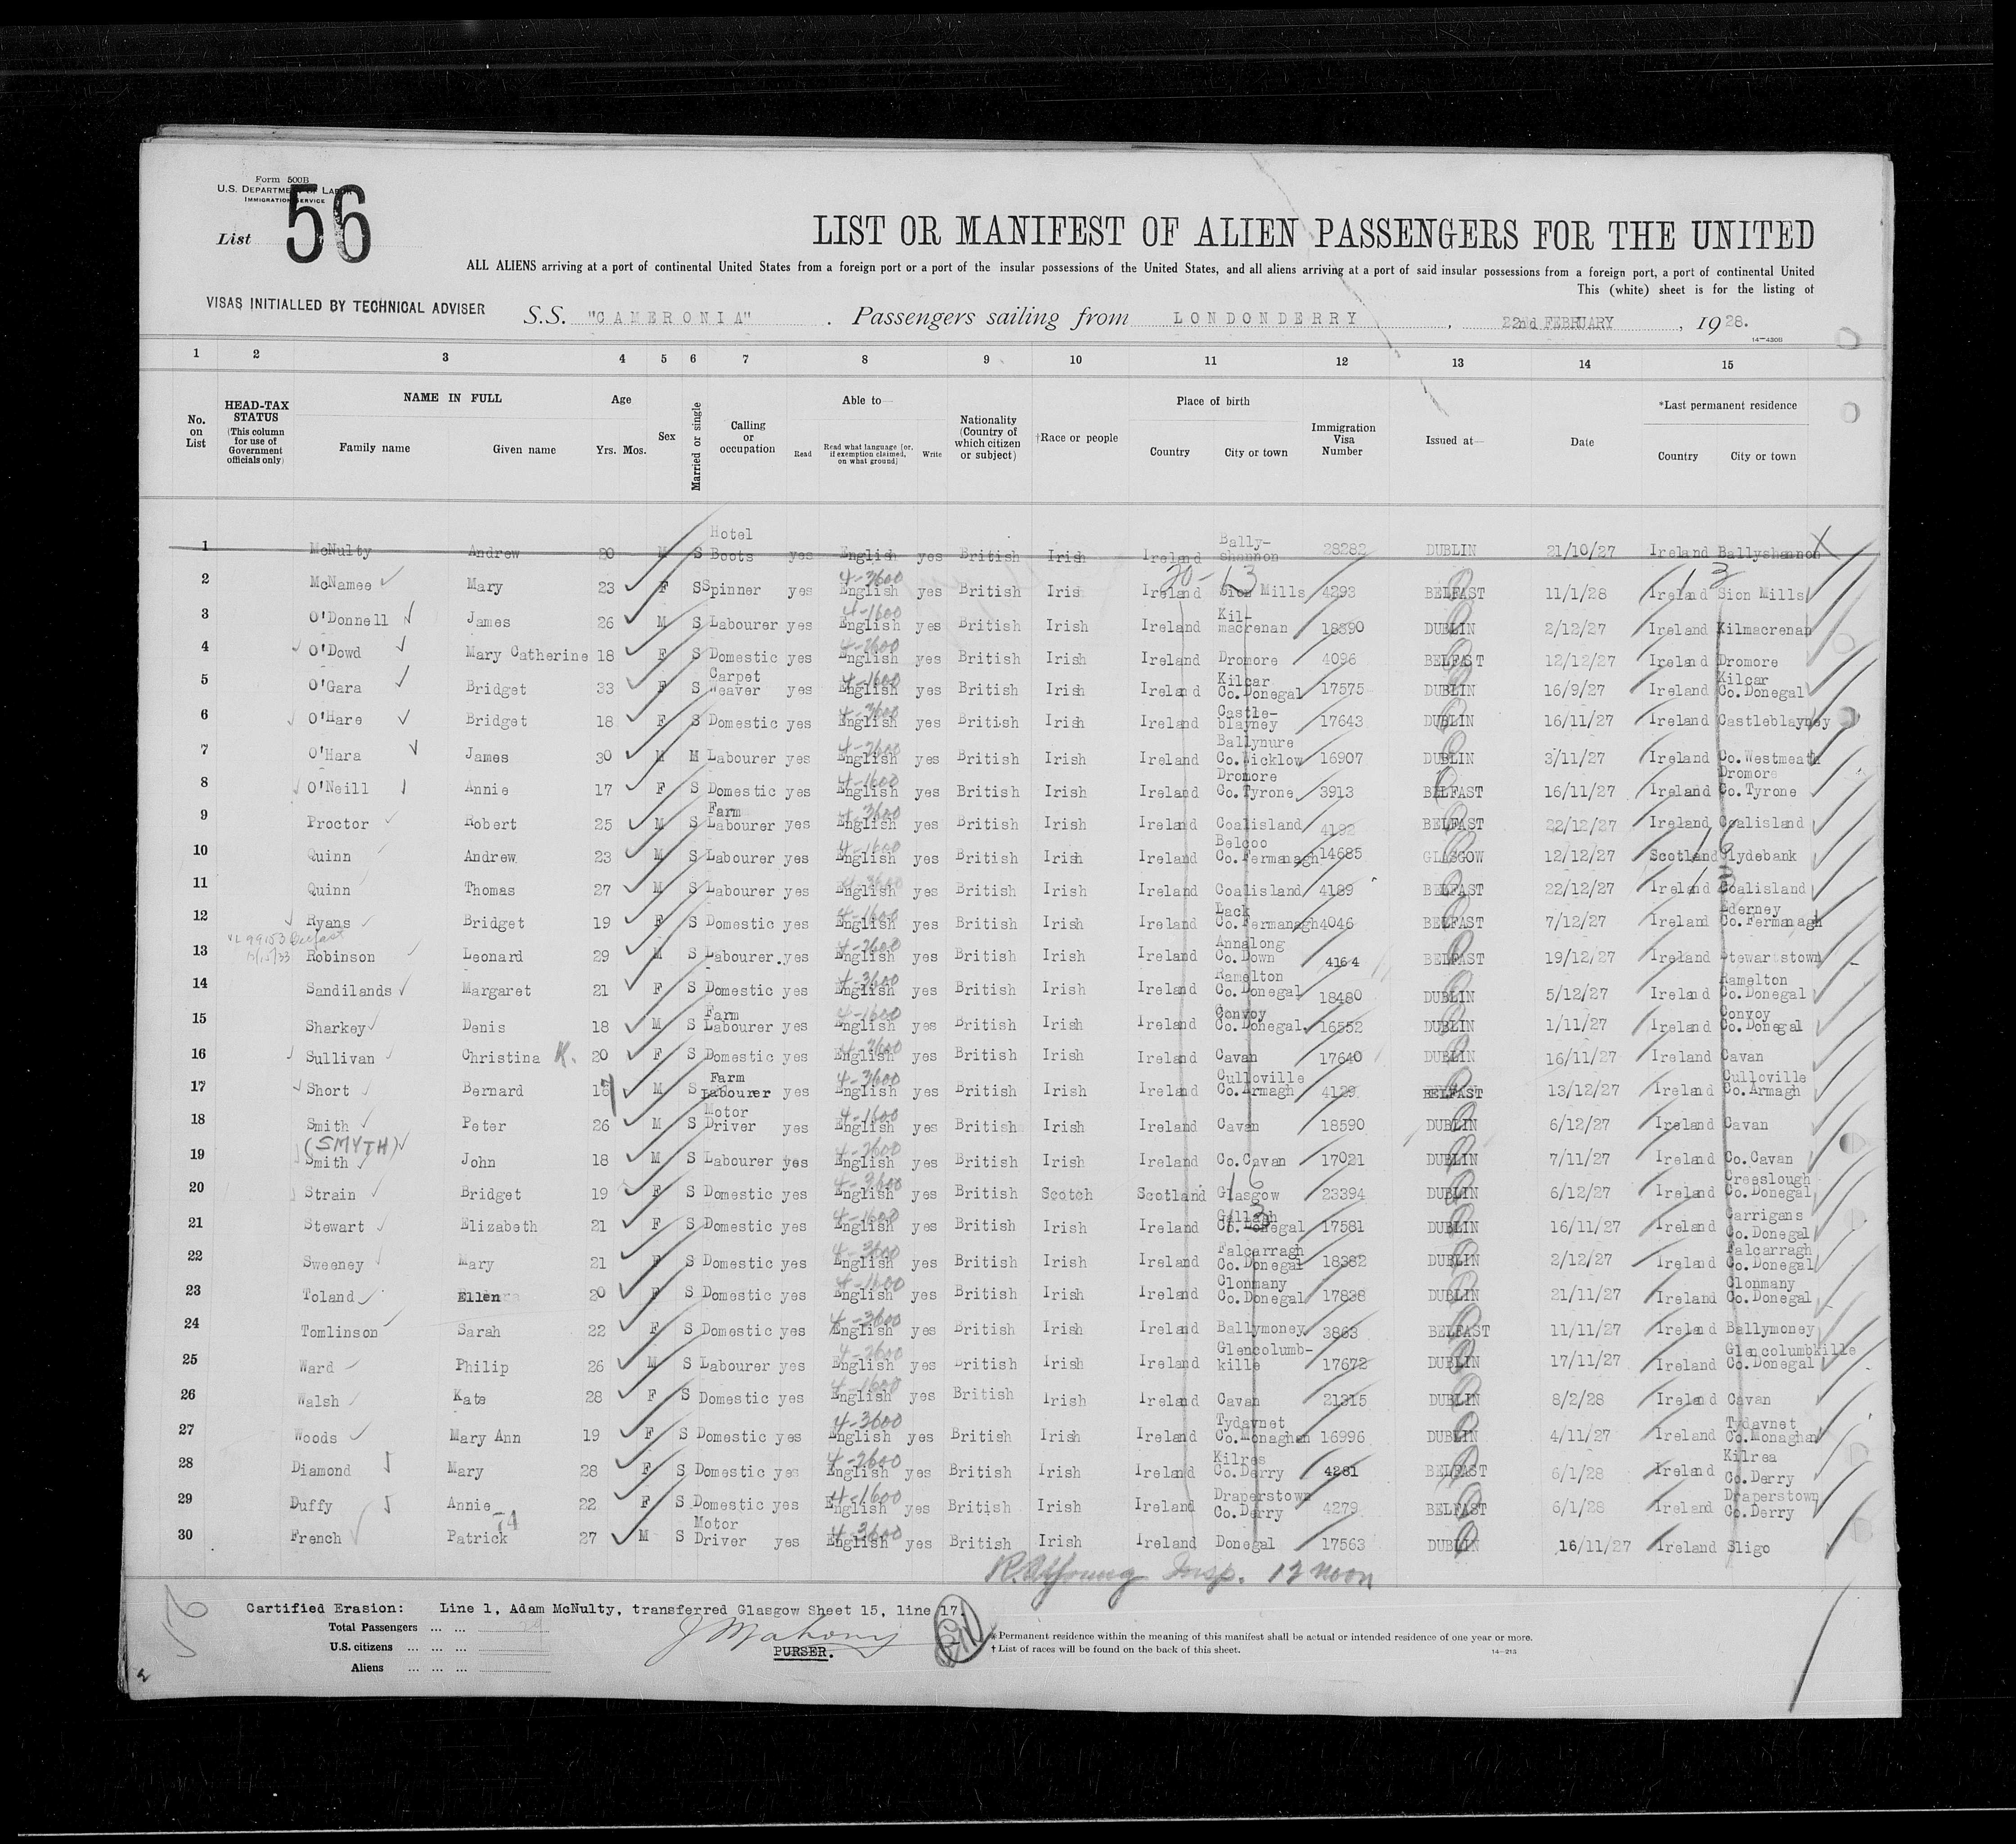 Form 500B
U.S. DEPARTMENT OF LABOR
IMMIGRATION SERVICE
List 56
LIST OR MANIFEST OF ALIEN PASSENGERS FOR THE UNITED
ALL ALIENS arriving at a port of continental United States from a foreign port or a port of the insular possessions of the United States, and all aliens arriving at a port of said insular possessions from a foreign port, a port of continental United
This (white) sheet is for the listing of
VISAS INITIALLED BY TECHNICAL ADVISER
S.S. "CAMERONIA". Passengers sailing from LONDONDERRY, 22nd FEBRUARY, 1928.
14-430B
1 2 3 4 5 6 7 8 9 10 11 12 13 14 15
No. on List
HEAD-TAX STATUS (This column for use of Government officials only)
NAME IN FULL Family name Given name
Age Yrs. Mos.
Sex
Married or single
Calling or occupation
Able to— Read Read what language [or, if exemption claimed, on what ground] Write
Nationality (Country of which citizen or subject)
†Race or people
Place of birth Country City or town
Immigration Visa Number
Issued at—
Date
*Last permanent residence Country City or town
1 McNulty Andrew 20 M S Hotel Boots yes English yes British Irish Ireland Bally-shannon 28282 DUBLIN 21/10/27 Ireland Ballyshannon X
2 McNamee Mary 23 F S Spinner yes 4-3600 English yes British Irish Ireland 20-13 Sion Mills 4293 BELFAST 11/1/28 Ireland 13 Sion Mills
3 O'Donnell James 26 M S Labourer yes 4-1600 English yes British Irish Ireland Kil-macrenan 18390 DUBLIN 2/12/27 Ireland Kilmacrenan
4 O'Dowd Mary Catherine 18 F S Domestic yes 4-2600 English yes British Irish Ireland Dromore 4096 BELFAST 12/12/27 Ireland Dromore
5 O'Gara Bridget 33 F S Carpet Weaver yes 4-1600 English yes British Irish Ireland Kilcar Co.Donegal 17575 DUBLIN 16/9/27 Ireland Kilcar Co.Donegal
6 O'Hare Bridget 18 F S Domestic yes 4-3600 English yes British Irish Ireland Castle-blayney 17643 DUBLIN 16/11/27 Ireland Castleblayney
7 O'Hara James 30 M M Labourer yes 4-2600 English yes British Irish Ireland Ballynure Co.Wicklow 16907 DUBLIN 3/11/27 Ireland Co.Westmeath
8 O'Neill Annie 17 F S Domestic yes 4-1600 English yes British Irish Ireland Dromore Co.Tyrone 3913 BELFAST 16/11/27 Ireland Dromore Co.Tyrone
9 Proctor Robert 25 M S Farm Labourer yes 4-3600 English yes British Irish Ireland Coalisland 4192 BELFAST 22/12/27 Ireland Coalisland
10 Quinn Andrew 23 M S Labourer yes 4-1600 English yes British Irish Ireland Belcoo Co.Fermanagh 14685 GLASGOW 12/12/27 Scotland 16 Clydebank
11 Quinn Thomas 27 M S Labourer yes English yes British Irish Ireland Coalisland 4189 BELFAST 22/12/27 Ireland 13 Coalisland
12 Ryans Bridget 19 F S Domestic yes 4-1600 English yes British Irish Ireland Lack Co.Fermanagh 4046 BELFAST 7/12/27 Ireland Ederney Co.Fermanagh
VL 99153 Belfast
13 Robinson Leonard 29 M S Labourer. yes 4-2600 English yes British Irish Ireland Annalong Co.Down 4164 BELFAST 19/12/27 Ireland Stewartstown
14 Sandilands Margaret 21 F S Domestic yes 4-3600 English yes British Irish Ireland Ramelton Co.Donegal 18480 DUBLIN 5/12/27 Ireland Ramelton Co.Donegal
15 Sharkey Denis 18 M S Farm Labourer yes 4-1600 English yes British Irish Ireland Convoy Co.Donegal. 16552 DUBLIN 1/11/27 Ireland Convoy Co.Donegal
16 Sullivan Christina K. 20 F S Domestic yes 4-2600 English yes British Irish Ireland Cavan 17640 DUBLIN 16/11/27 Ireland Cavan
17 Short Bernard 17 M S Farm Labourer yes 4-3600 English yes British Irish Ireland Culloville Co.Armagh 4129 BELFAST 13/12/27 Ireland Culloville Co.Armagh
18 Smith Peter 26 M S Motor Driver yes 4-1600 English yes British Irish Ireland Cavan 18590 DUBLIN 6/12/27 Ireland Cavan
(SMYTH)
19 Smith John 18 M S Labourer yes 4-2600 English yes British Irish Ireland Co.Cavan 17021 DUBLIN 7/11/27 Ireland Co.Cavan
20 Strain Bridget 19 F S Domestic yes 4-3600 English yes British Scotch Scotland 16 Glasgow 23394 DUBLIN 6/12/27 Ireland Creeslough Co.Donegal
21 Stewart Elizabeth 21 F S Domestic yes 4-1600 English yes British Irish Ireland 13 Co.Donegal 17581 DUBLIN 16/11/27 Ireland Carrigans Co.Donegal
22 Sweeney Mary 21 F S Domestic yes 4-3600 English yes British Irish Ireland Falcarragh Co.Donegal 18382 DUBLIN 2/12/27 Ireland Falcarragh Co.Donegal
23 Toland Ellen 20 F S Domestic yes 4-1600 English yes British Irish Ireland Clonmany Co.Donegal 17838 DUBLIN 21/11/27 Ireland Clonmany Co.Donegal
24 Tomlinson Sarah 22 F S Domestic yes 4-3600 English yes British Irish Ireland Ballymoney 3863 BELFAST 11/11/27 Ireland Ballymoney
25 Ward Philip 26 M S Labourer yes 4-2600 English yes British Irish Ireland Glencolumb-kille 17672 DUBLIN 17/11/27 Ireland Glencolumbkille Co.Donegal
26 Walsh Kate 28 F S Domestic yes 4-1600 English yes British Irish Ireland Cavan 21315 DUBLIN 8/2/28 Ireland Cavan
27 Woods Mary Ann 19 F S Domestic yes 4-3600 English yes British Irish Ireland Tydavnet Co.Monaghan 16996 DUBLIN 4/11/27 Ireland Tydavnet Co.Monaghan
28 Diamond Mary 28 F S Domestic yes 4-2600 English yes British Irish Ireland Kilrea Co.Derry 4281 BELFAST 6/1/28 Ireland Kilrea Co.Derry
29 Duffy Annie 22 F S Domestic yes 4-1600 English yes British Irish Ireland Draperstown Co.Derry 4279 BELFAST 6/1/28 Ireland Draperstown Co.Derry
74
30 French Patrick 27 M S Motor Driver yes 4-3600 English yes British Irish Ireland Donegal 17563 DUBLIN 16/11/27 Ireland Sligo
Insp. 12 noon
Cartified Erasion: Line 1, Adam McNulty, transferred Glasgow Sheet 15, line 17.
Total Passengers ... ... 29
U.S. citizens ... ... ...
Aliens ... ... ...
J Mahony
PURSER.
* Permanent residence within the meaning of this manifest shall be actual or intended residence of one year or more.
† List of races will be found on the back of this sheet.
14-215